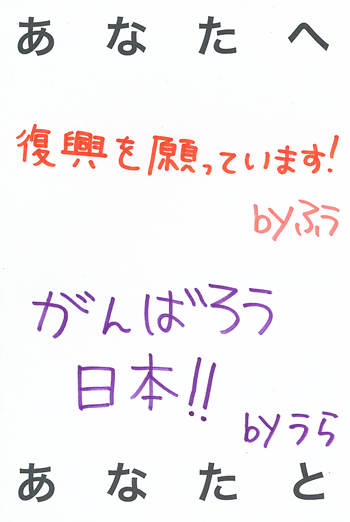 あなたへ
復興を願っています!
byふう
がんばろう
日本!!
byうら
あなたと